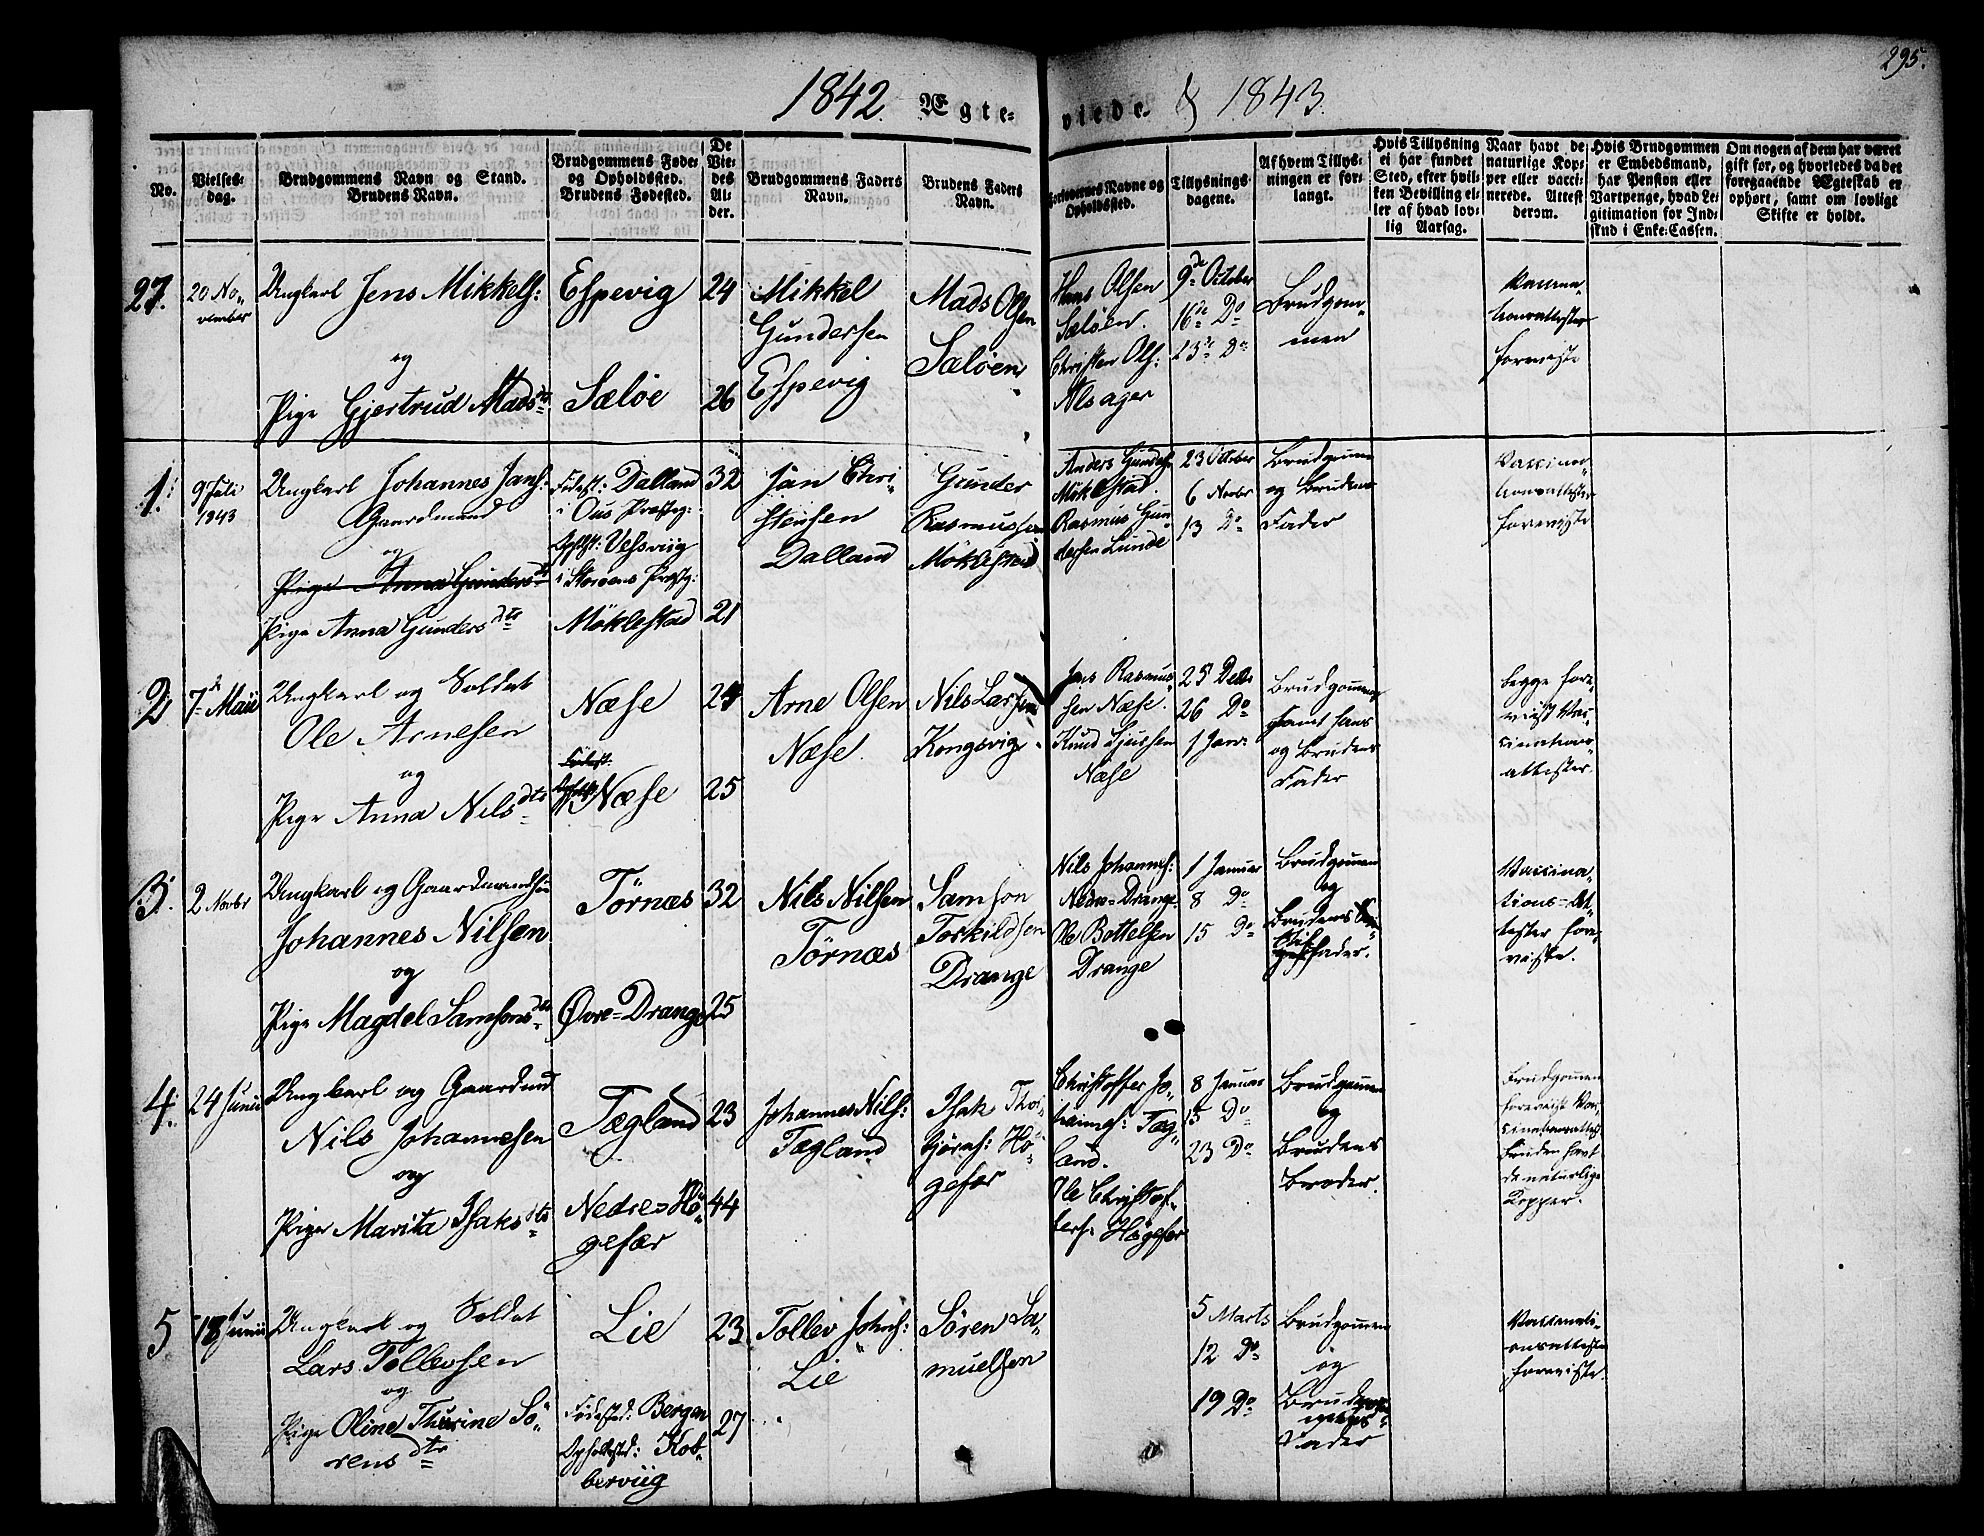 295.
1842 Ægte- viede. & 1843.
No.
Vielses-
dag.
Brudgommens Navn og Stand.
Brudens Navn.
Brudgommens Føde-
og Opholdssted.
Brudens Fødested.
De
Vie-
des
Al-
der.
Brudgommens Faders
Navn.
Brudens Faders
Navn.
Forlovernes Navne og
Opholdssted.
Tillysnings-
dagene.
Af hvem Tillys-
ningen er for-
langt.
Hvis Tillysning
ei har fundet
Sted, efter hvil-
ken Bevilling el-
ler af hvad lov-
lig Aarsag.
Naar havt de
naturlige Kop-
per eller vacci-
nerede. Attest
derom.
Hvis Brudgommen
er Embedsmand,
har Pension eller
Vartpenge, hvad Le-
gitimation for Ind-
skud i Enke-Cassen.
Om nogen af dem har været
gift før, og hvorledes da det
foregaaende Ægteskab er
ophørt, samt om lovligt
Skifte er holdt.
27.
20 No-
vember
Ungkarl Jens Mikkels:
og
Pige Gjertrud Madsdtr
Espevig
Sæløe
24
26
Mikkel
Gundersen
Espevig
Mads Olsen
Sæløen
Hans Olsen
Sæløen.
Christen Ols:
Alsager
9de October
16de Do
23de Do
Brudgom-
men
Vaccina-
tionsattester
foreviste
1.
9 Juli
1843
Ungkarl Johannes Jans:
Gaardmand
og
Pige Anna Gundersdtr
Pige Anna Gundersdtr
Fødest: Dalland
i Ous Præsteg:
Opholdst: Vessviig
i Storøens Præsteg:
Möklestad
32
21
Jan Chri-
stensen
Dalland
Gunder
Rasmussen
Möklestad
Anders Gunders:
Möklestad.
Rasmus Gun-
dersen Lunde
23 October
6 Novbr
13 Do
Brudgommen
og Brudens
Fader
Vaccina-
tionsattester
foreviste
2
7de Maii
Ungkarl og Soldat
Ole Arnesen
og
Pige Anna Nilsdtr
Næse
Fødest:
Opholdst: Næse
24
25
Arne Olsen
Næse.
Nils Larsen
Kongsvig.
Jens Rasmus-
sen Næse.
Knud Sjursen
Næse
25 Decbr
26 Do
1 Janr
Brudgommen
samt hans
og Brudens
Fader
Begge fore-
viist Vac-
cinations-
attester.
3.
2 Novbr
Ungkarl og Gaardmandsøn
Johannes Nilsen
og
Pige Magdel Samsonsdtr
Törnæs
Øvre-Drange
32
25
Nils Nilsen
Törnæs
Samson
Torkildsen
Drange
Nils Johannes:
Nedre-Drange
Ole Bottelsen
Drange
1 Januar
8 Do
15 Do
Brudgommen
og
Brudens
fader.
Vaccina-
tions-At-
tester fore-
viste.
4.
24 Junii
Ungkarl og Gaardmd
Nils Johannesen
og
Pige Marita Isaksdtr
Tægland
Nedre-Hö-
gefær
23
44
Johannes Nils:
Tægland
Isak Thor-
björns: Hö-
gefær
Christoffer Jo-
hannes: Tæg-
land.
Ole Christof-
fers: Högefær
8 Januar
15 Do
23 Do
Brudgommen
og
Brudens
Broder.
Brudgommen
foreviist Vac-
cinationsattest
Bruden havt
de naturlige
Kopper.
5
18 Junii
Ungkarl og Soldat
Lars Tollevsen
og
Pige Oline Thurine Sö-
rensdtr
Lie
Fødested: Bergen
Opholdssted: Kob-
berviig
23
27
Tollev Johns:
Lie
Sören Sa-
muelsen
5 Marts
12 Do
19 Do
Brudgommen
og
Fader
Vaccinati-
onsattester
foreviste.